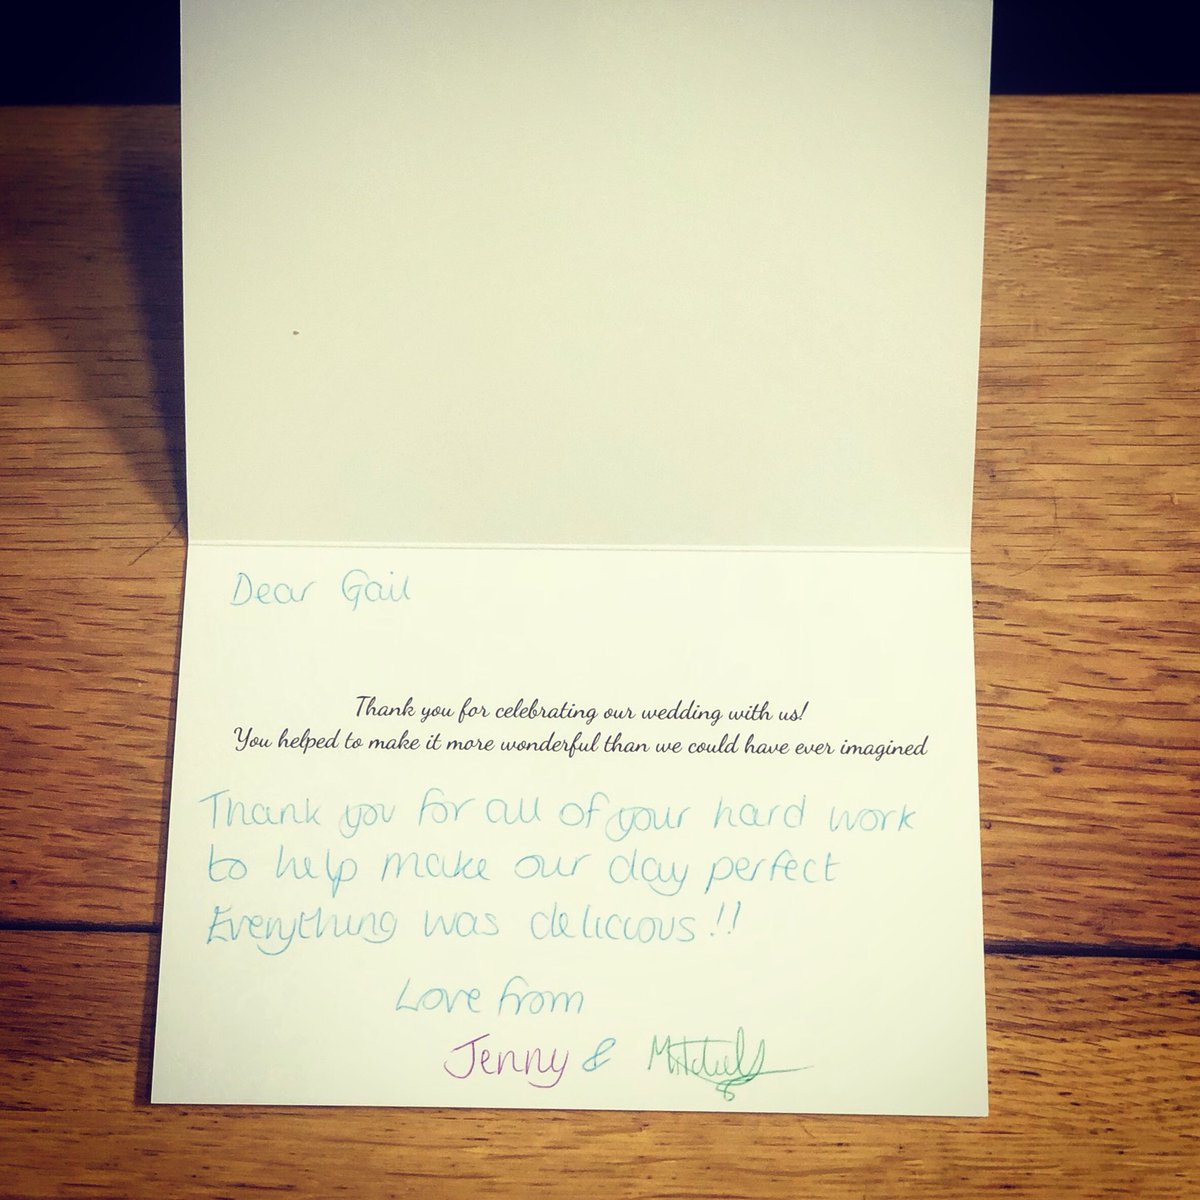 Dear Gail
Thank you for celebrating our wedding with us!
You helped to make it more wonderful than we could have ever imagined
Thank you for all of your hard work
to help make our day perfect
Everything was delicious!!
Love from
Jenny & Mitchell